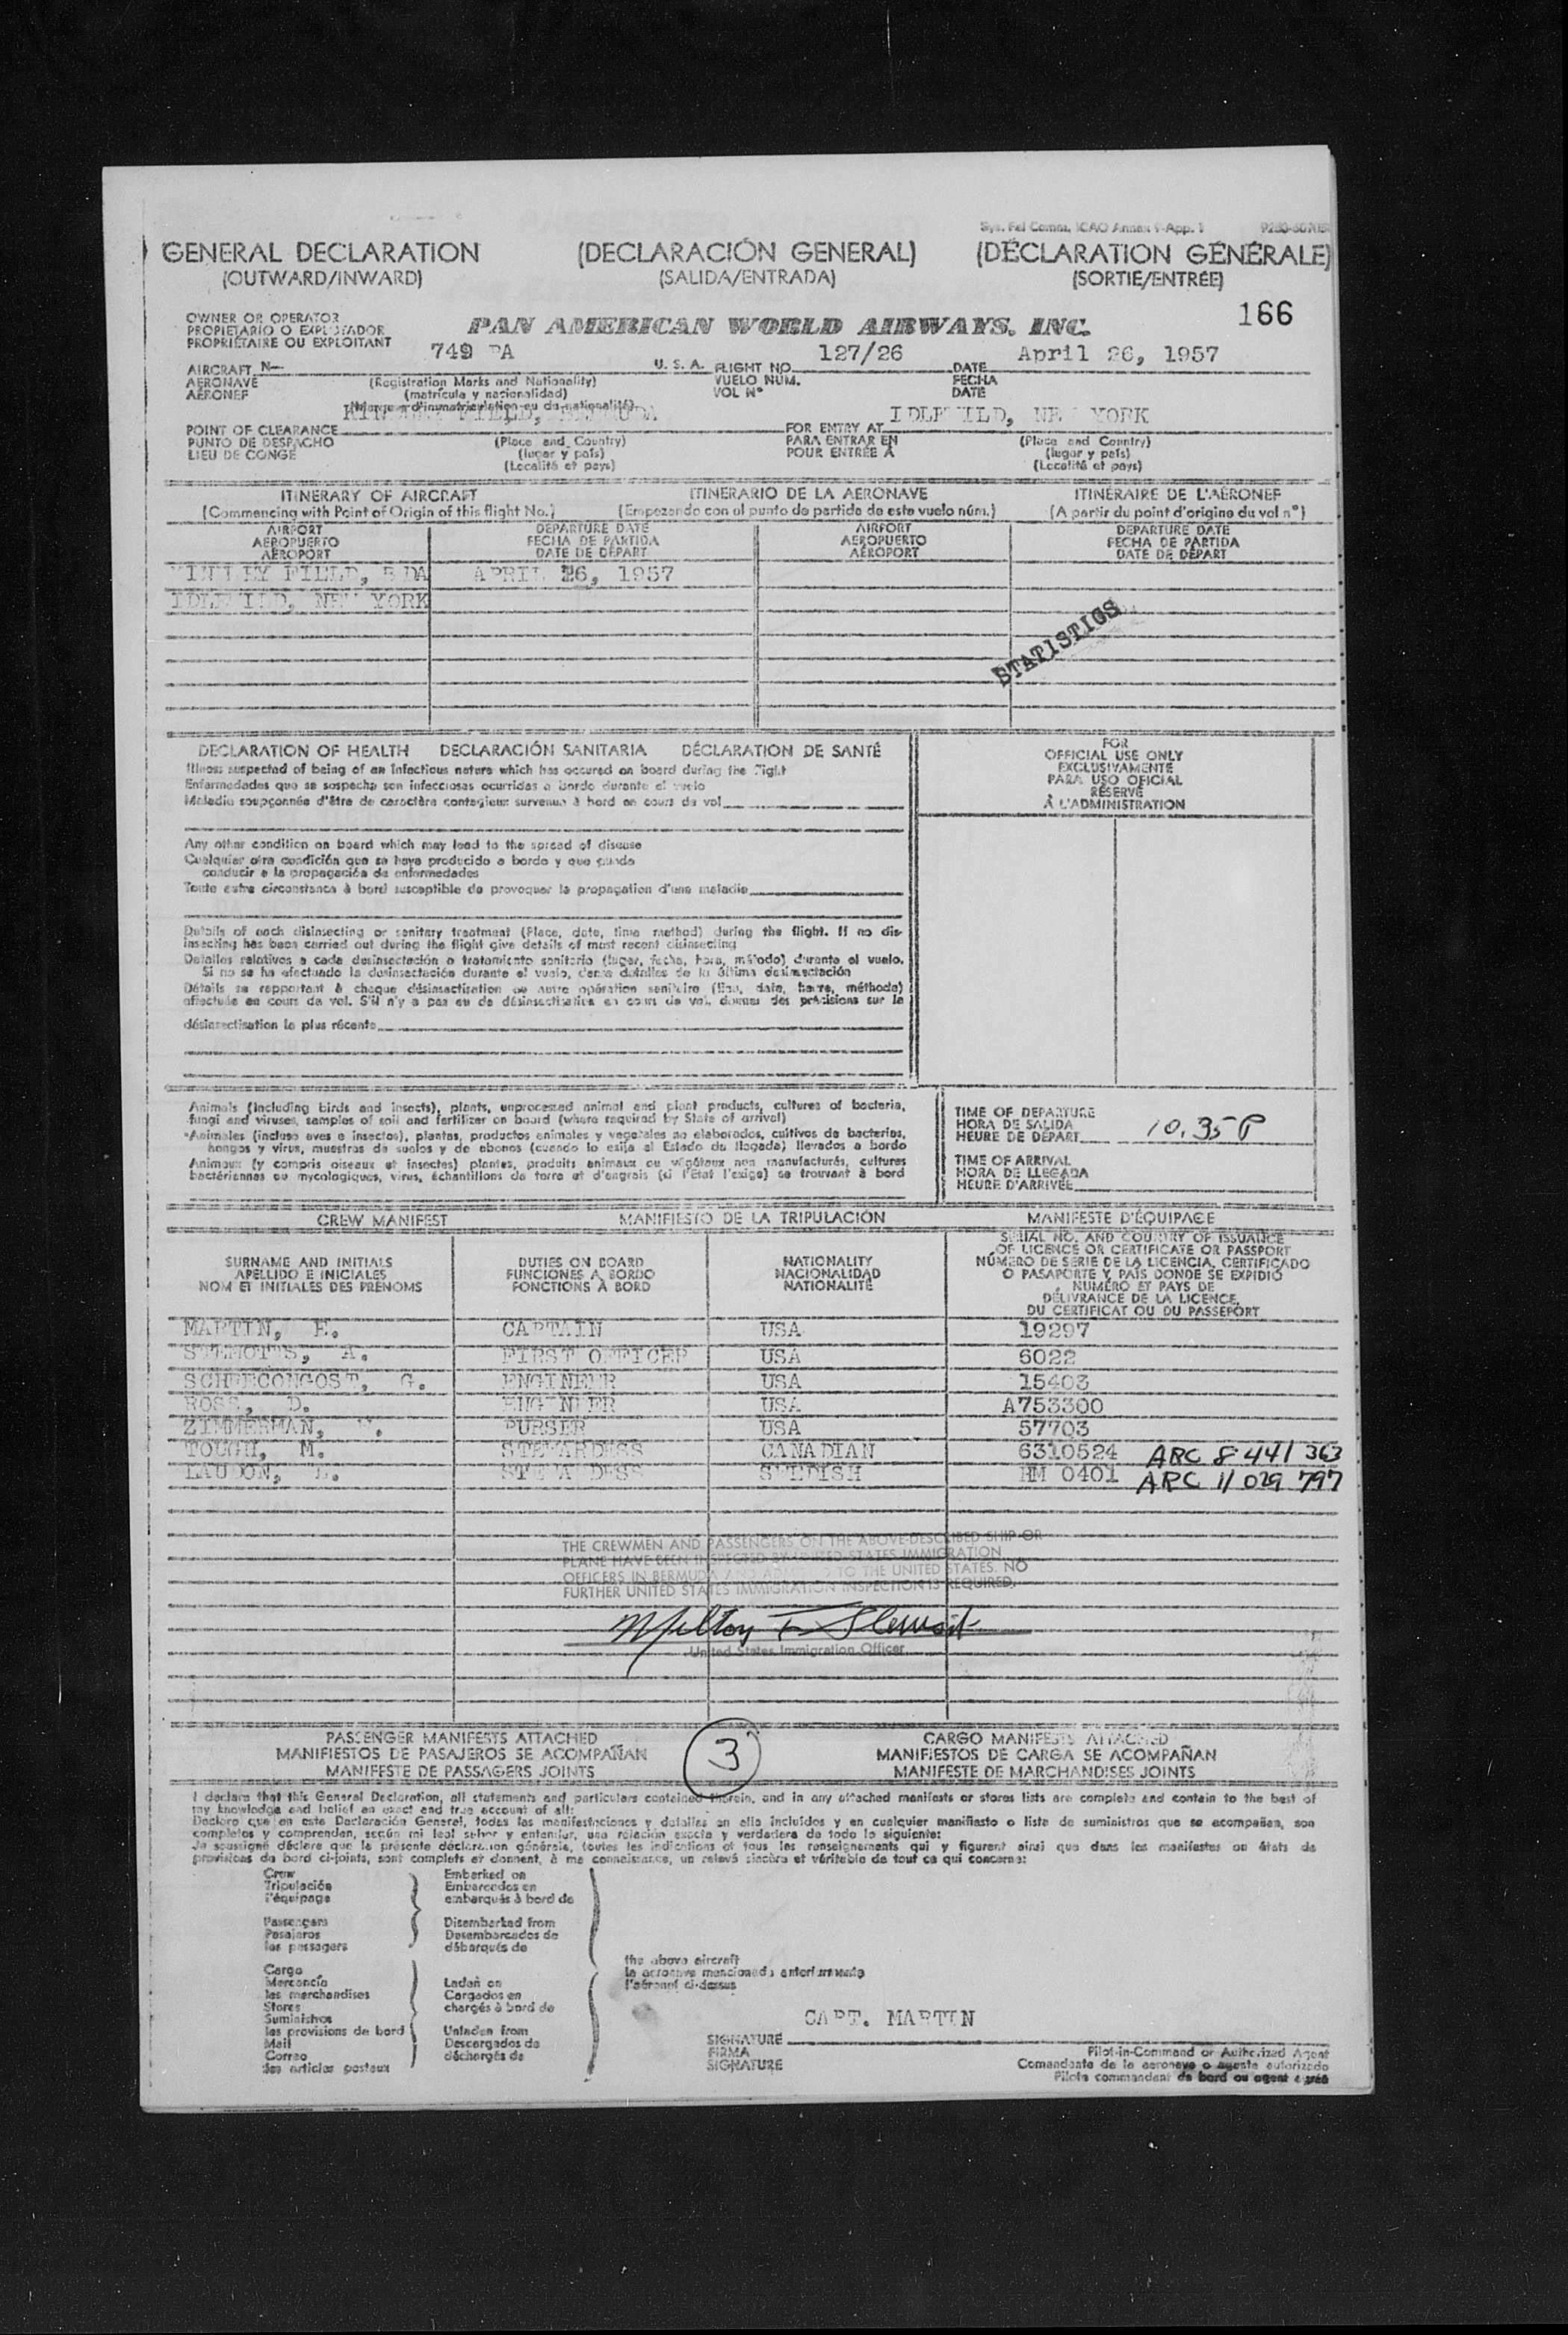 Sys. Fal Comns, ICAO Annex 9-App. 1
GENERAL DECLARATION (DECLARACIÓN GENERAL) (DÉCLARATION GÉNÉRALE)
(OUTWARD/INWARD) (SALIDA/ENTRADA) (SORTIE/ENTRÉE)
166
OWNER OR OPERATOR
PROPIETARIO O EXPLOTADOR
PROPRIÉTAIRE OU EXPLOITANT
PAN AMERICAN WORLD AIRWAYS, INC.
749 PA 127/26 April 26, 1957
AIRCRAFT N— U. S. A. FLIGHT NO. DATE
AERONAVE (Registration Marks and Nationality) VUELO NÚM. FECHA
AÉRONEF (matrícula y nacionalidad) VOL Nº DATE
(Marques d'immatriculation ou de nationalité)
KINDLEY FIELD, BERMUDA IDLEWILD, NEW YORK
POINT OF CLEARANCE FOR ENTRY AT
PUNTO DE DESPACHO (Place and Country) PARA ENTRAR EN (Place and Country)
LIEU DE CONGÉ (lugar y país) POUR ENTRÉE À (lugar y país)
(Localité et pays) (Localité et pays)
ITINERARY OF AIRCRAFT ITINERARIO DE LA AERONAVE ITINÉRAIRE DE L'AÉRONEF
(Commencing with Point of Origin of this flight No.) (Empezando con el punto de partida de este vuelo núm.) (A partir du point d'origine du vol nº)
AIRPORT DEPARTURE DATE AIRPORT DEPARTURE DATE
AEROPUERTO FECHA DE PARTIDA AEROPUERTO FECHA DE PARTIDA
AÉROPORT DATE DE DÉPART AÉROPORT DATE DE DÉPART
KINDLEY FIELD, BDA APRIL 26, 1957
IDLEWILD, NEW YORK
STATISTICS
DECLARATION OF HEALTH DECLARACIÓN SANITARIA DÉCLARATION DE SANTÉ
Illness suspected of being of an infectious nature which has occured on board during the flight
Enfermedades que se sospecha son infecciosas ocurridas a bordo durante el vuelo
Maladie soupçonnée d'être de caractère contagieux survenue à bord en cours de vol
Any other condition on board which may lead to the spread of disease
Cualquier otra condición que se haya producido a bordo y que pueda
conducir a la propagación de enfermedades
Toute autre circonstance à bord susceptible de provoquer la propagation d'une maladie
Details of each disinsecting or sanitary treatment (Place, date, time method) during the flight. If no dis-
insecting has been carried out during the flight give details of most recent disinsecting
Detalles relativos a cada desinsectación o tratamiento sanitario (lugar, fecha, hora, método) durante el vuelo.
Si no se ha efectuado la desinsectación durante el vuelo, dense detalles de la última desinsectación
Détails se rapportant à chaque désinsectisation ou autre opération sanitaire (lieu, date, heure, méthode)
effectuée en cours de vol. S'il n'y a pas eu de désinsectisation en cours de vol, donner des précisions sur la
désinsectisation la plus récente
FOR
OFFICIAL USE ONLY
EXCLUSIVAMENTE
PARA USO OFICIAL
RÉSERVÉ
À L'ADMINISTRATION
Animals (including birds and insects), plants, unprocessed animal and plant products, cultures of bacteria,
fungi and viruses, samples of soil and fertilizer on board (where required by State of arrival)
Animales (incluso aves e insectos), plantas, productos animales y vegetales no elaborados, cultivos de bacterias,
hongos y virus, muestras de suelos y de abonos (cuando lo exija el Estado de llegada) llevados a bordo
Animaux (y compris oiseaux et insectes) plantes, produits animaux ou végétaux non manufacturés, cultures
bactériennes ou mycologiques, virus, échantillons de terre et d'engrais (si l'État l'exige) se trouvant à bord
TIME OF DEPARTURE
HORA DE SALIDA
HEURE DE DÉPART 10.35 P
TIME OF ARRIVAL
HORA DE LLEGADA
HEURE D'ARRIVÉE
CREW MANIFEST MANIFIESTO DE LA TRIPULACIÓN MANIFESTE D'ÉQUIPAGE
SURNAME AND INITIALS
APELLIDO E INICIALES
NOM ET INITIALES DES PRÉNOMS
DUTIES ON BOARD
FUNCIONES A BORDO
FONCTIONS À BORD
NATIONALITY
NACIONALIDAD
NATIONALITÉ
SERIAL NO. AND COUNTRY OF ISSUANCE
OF LICENCE OR CERTIFICATE OR PASSPORT
NÚMERO DE SERIE DE LA LICENCIA, CERTIFICADO
O PASAPORTE Y PAÍS DONDE SE EXPIDIÓ
NUMÉRO ET PAYS DE
DÉLIVRANCE DE LA LICENCE,
DU CERTIFICAT OU DU PASSEPORT
MARTIN, E. CAPTAIN USA 19297
A. FIRST OFFICER USA 6022
SCHRECONGOST, G. ENGINEER USA 15403
ROSS, D. ENGINEER USA A753300
ZIMMERMAN, PURSER USA 57703
TOUGH, M. STEWARDESS CANADIAN 6310524 ARC 8 441 363
LAUDON, STEWARDESS SWEDISH HM 0401 ARC 11 029 797
THE CREWMEN AND PASSENGERS ON THE ABOVE-DESCRIBED SHIP OR
PLANE HAVE BEEN INSPECTED BY UNITED STATES IMMIGRATION
OFFICERS IN BERMUDA AND ADMITTED TO THE UNITED STATES. NO
FURTHER UNITED STATES IMMIGRATION INSPECTION IS REQUIRED.
Milton F
United States Immigration Officer
PASSENGER MANIFESTS ATTACHED CARGO MANIFESTS ATTACHED
MANIFIESTOS DE PASAJEROS SE ACOMPAÑAN 3 MANIFIESTOS DE CARGA SE ACOMPAÑAN
MANIFESTE DE PASSAGERS JOINTS MANIFESTE DE MARCHANDISES JOINTS
I declare that this General Declaration, all statements and particulars contained therein, and in any attached manifests or stores lists are complete and contain to the best of
my knowledge and belief an exact and true account of all:
Declaro que en esta Declaración General, todas las manifestaciones y detalles en ella incluídos y en cualquier manifiesto o lista de suministros que se acompañan, son
completos y comprenden, según mi leal saber y entender, una relación exacta y verdadera de todo lo siguiente:
Je soussigné déclare que la présente déclaration générale, toutes les indications et tous les renseignements qui y figurent ainsi que dans les manifestes ou états de
provisions de bord ci-joints, sont complets et donnent, à ma connaissance, un relevé sincère et véritable de tout ce qui concerne:
Crew
Tripulación
l'équipage
Embarked on
Embarcados en
embarqués à bord de
Passengers
Pasajeros
les passagers
Disembarked from
Desembarcados de
débarqués de
the above aircraft
la aeronave mencionada anteriormente
l'aéronef ci-dessus
Cargo
Mercancía
les marchandises
Stores
Suministros
les provisions de bord
Mail
Correo
des articles postaux
Laden on
Cargados en
chargés à bord de
Unladen from
Descargados de
déchargés de
CAPT. MARTIN
SIGNATURE
FIRMA
SIGNATURE
Pilot-in-Command or Authorized Agent
Comandante de la aeronave o agente autorizado
Pilote commandant de bord ou agent agréé